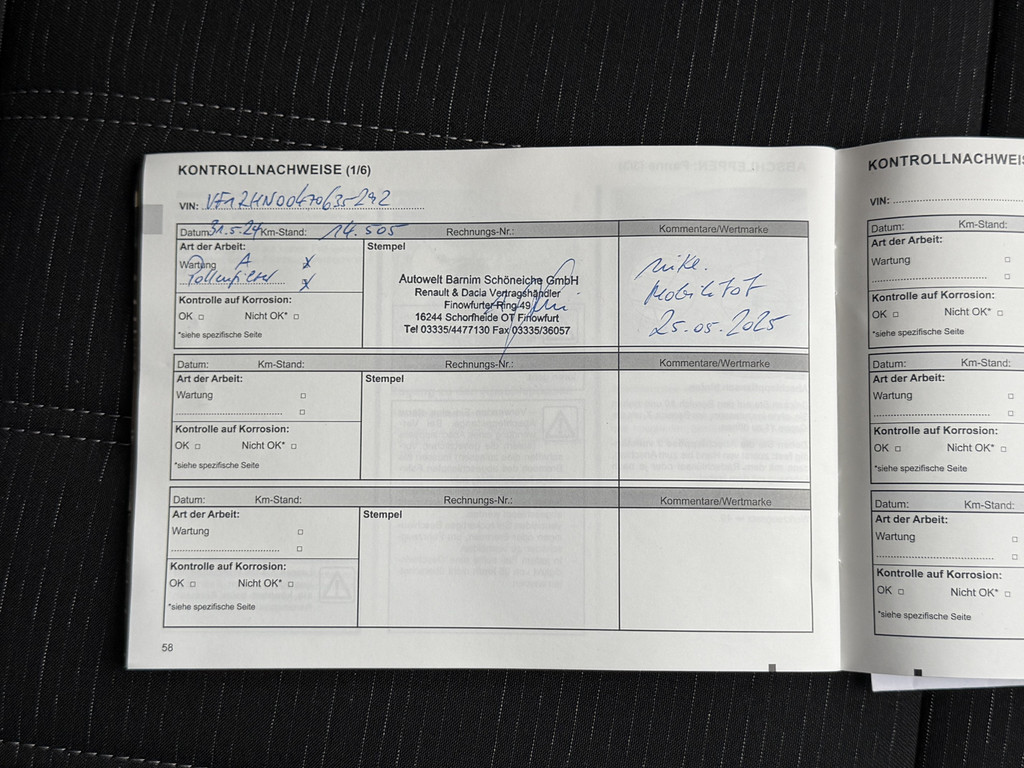 KONTROLLNACHWEISE (1/6)
VIN:
Datum: 31.5.24 Km-Stand: 14.505 Rechnungs-Nr.: Kommentare/Wertmarke
Art der Arbeit: Stempel
Wartung A x
Pollenfilter x
Kontrolle auf Korrosion:
OK Nicht OK*
*siehe spezifische Seite
Autowelt Barnim Schöneiche GmbH
Renault & Dacia Vertragshändler
Finowfurter Ring 49
16244 Schorfheide OT Finowfurt
Tel 03335/4477130 Fax 03335/36057
Mobilität
25.05.2025
Datum: Km-Stand: Rechnungs-Nr.: Kommentare/Wertmarke
Art der Arbeit: Stempel
Wartung
Kontrolle auf Korrosion:
OK Nicht OK*
*siehe spezifische Seite
Datum: Km-Stand: Rechnungs-Nr.: Kommentare/Wertmarke
Art der Arbeit: Stempel
Wartung
Kontrolle auf Korrosion:
OK Nicht OK*
*siehe spezifische Seite
58
KONTROLLNACHWEIS
VIN:
Datum: Km-Stand:
Art der Arbeit:
Wartung
Kontrolle auf Korrosion:
OK Nicht OK*
*siehe spezifische Seite
Datum: Km-Stand:
Art der Arbeit:
Wartung
Kontrolle auf Korrosion:
OK Nicht OK*
*siehe spezifische Seite
Datum: Km-Stand:
Art der Arbeit:
Wartung
Kontrolle auf Korrosion:
OK Nicht OK*
*siehe spezifische Seite